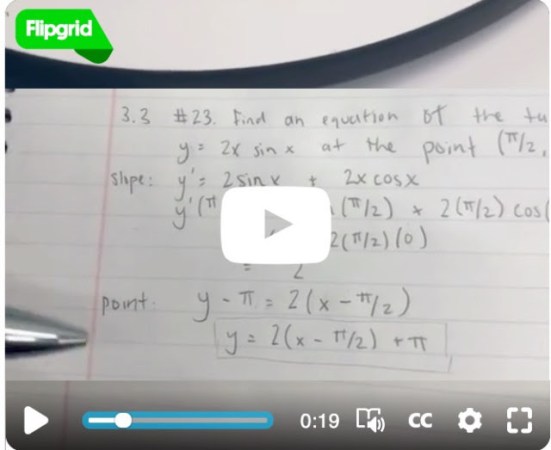 Flipgrid
3.3 #23. Find an equation of the
y = 2x sin x at the point (π/2,
slope: y' = 2 sin x + 2x cos x
y'(π (π/2) + 2(π/2) cos(
2(π/2)(0)
= 2
point: y - π = 2(x - π/2)
y = 2(x - π/2) + π
0:19 CC